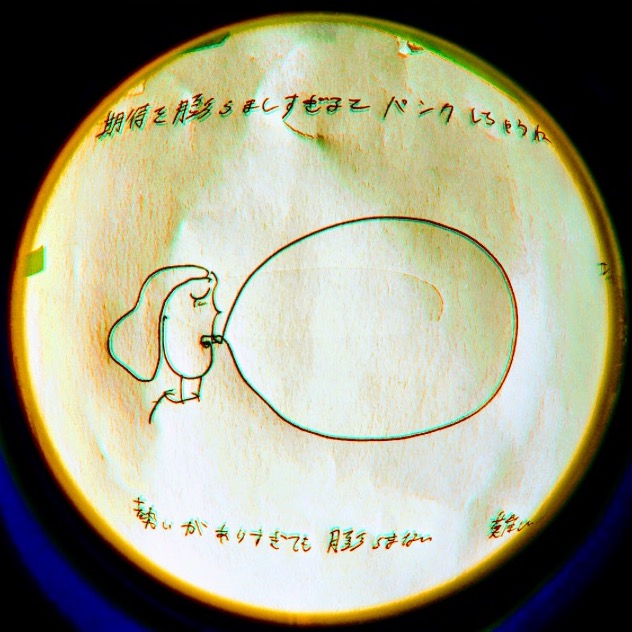 期待を膨らましすぎるとパンクしちゃうね
勢いがありすぎても膨らまない 難しい